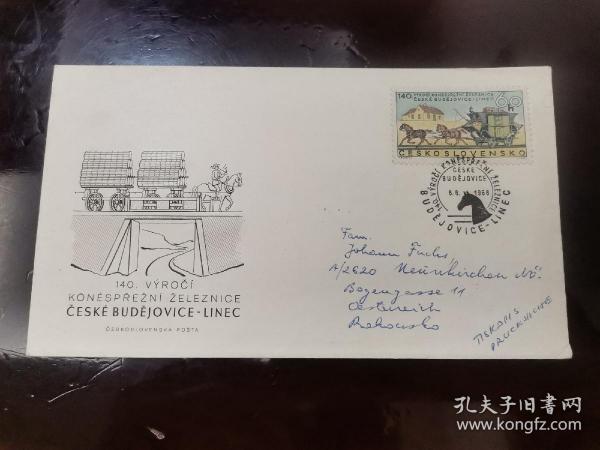 140. VÝROČÍ KONĚSPŘEŽNÍ ŽELEZNICE
ČESKÉ BUDĚJOVICE-LINEC
60 h
ČESKOSLOVENSKO
140. VÝROČÍ KONĚSPŘEŽNÍ ŽELEZNICE
ČESKÉ
BUDĚJOVICE
1968
BUDĚJOVICE-LINEC
140. VÝROČÍ
KONĚSPŘEŽNÍ ŽELEZNICE
ČESKÉ BUDĚJOVICE-LINEC
ČESKOSLOVENSKÁ POŠTA
Fam.
Johann Fuchs
A/2620 Neunkirchen NÖ.
Bogengasse 11
Österreich
Rakousko
TISKOPIS
孔夫子旧书网
www.kongfz.com